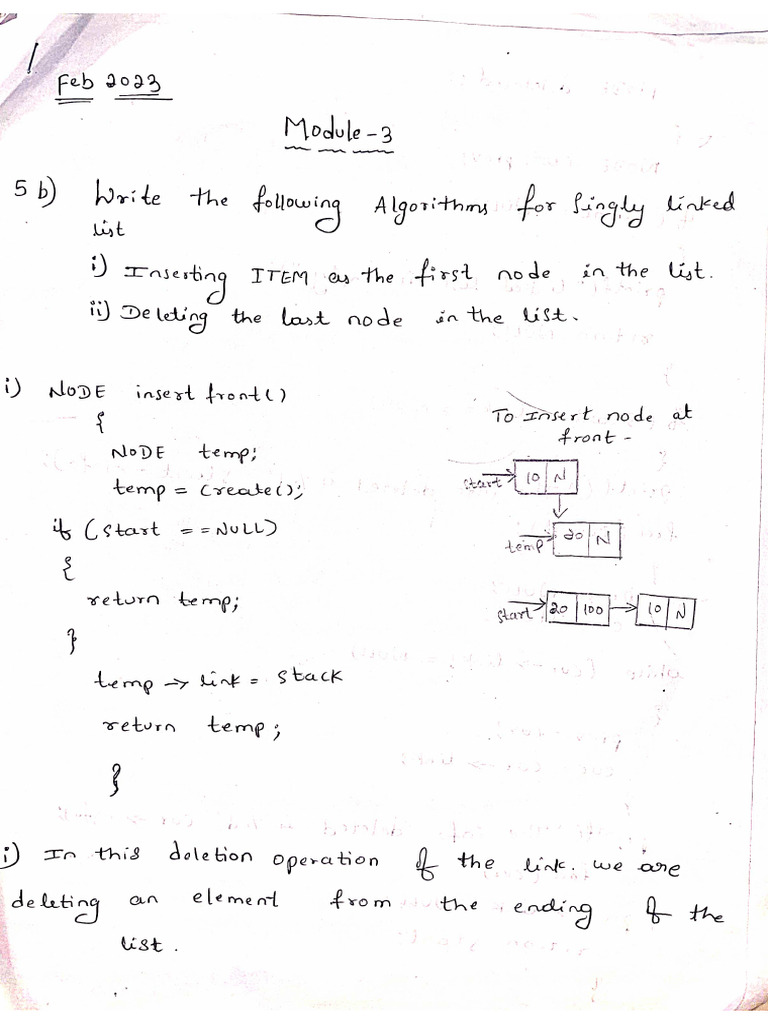 Feb 2023
Module-3
5 b) Write the following Algorithms for singly linked
list
i) Inserting ITEM as the first node in the list.
ii) Deleting the last node in the list.
i) NODE insert front()
{
NODE temp;
temp = create();
if (start == NULL)
{
return temp;
}
temp -> link = stack
return temp;
}
To Insert node at
front -
start 10 N
temp 20 N
start 20 100 10 N
i) In this deletion operation of the link. we are
deleting an element from the ending of the
list.